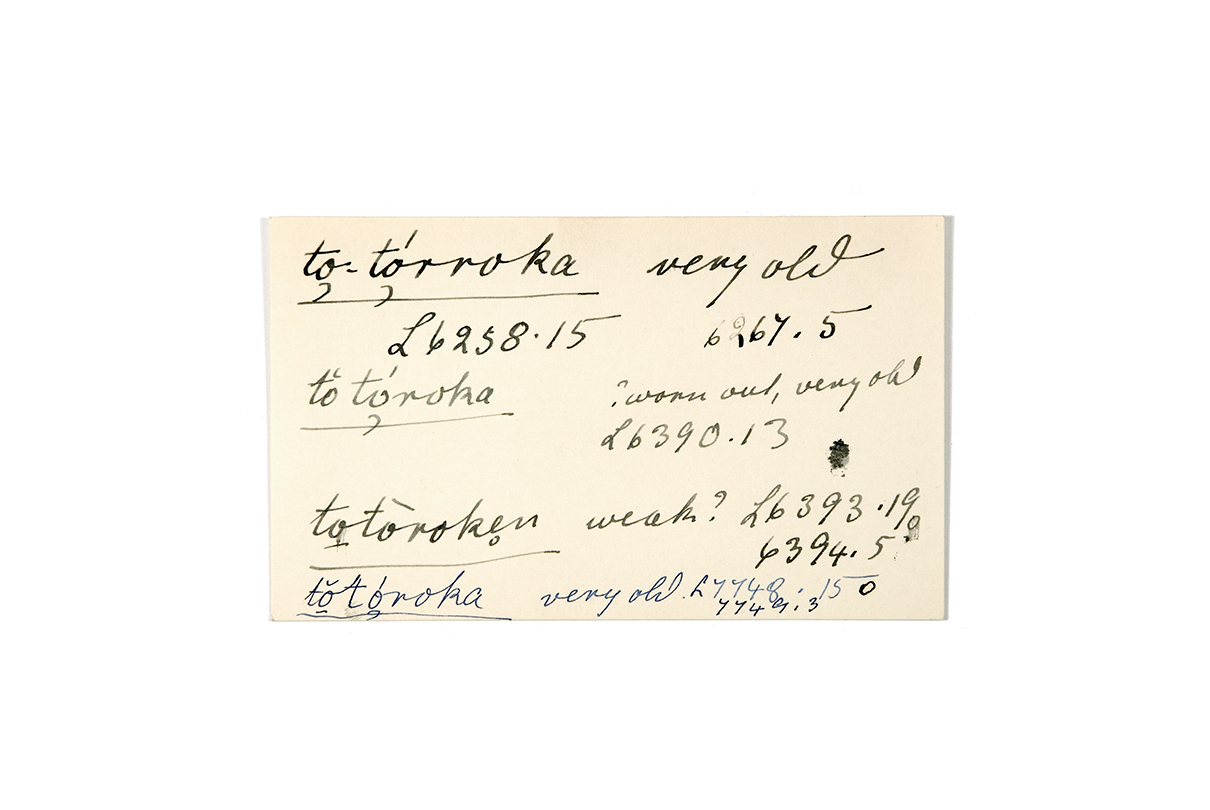 tǫ-tǫ́rroka very old
L6258.15 6267.5
tŏ tǫ́roka ?worn out, very old
L6390.13
to̱tōroken̥ weak? L6393.19
6394.5
tŏ̱tó̱roka very old. L7748.15
7749.3